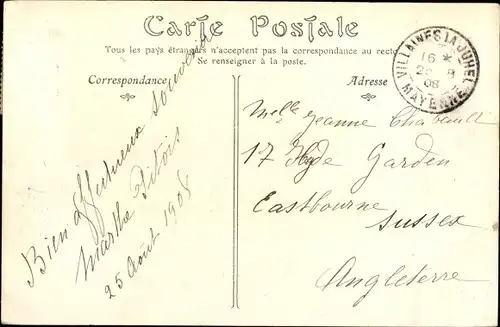 Carte Postale
Tous les pays étrangers n'acceptent pas la correspondance au recto
Se renseigner à la poste.
Correspondance
Adresse
VILLAINES LA JUHEL
16 *
08
MAYENNE
Bien affectueux souvenir
Marthe
25 Août 1908
Melle Jeanne Chabault
17 Hyde Garden
Eastbourne
Sussex
Angleterre